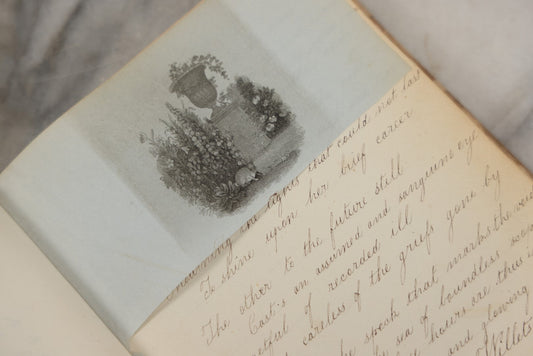 mourning the lights that could not last
To shine upon her brief career
The other to the future still
Casts on assumed and sanguine eye
etful of recorded ill
careless of the griefs gone by
speck that marks the
sea of boundless
hours are
and
Willets